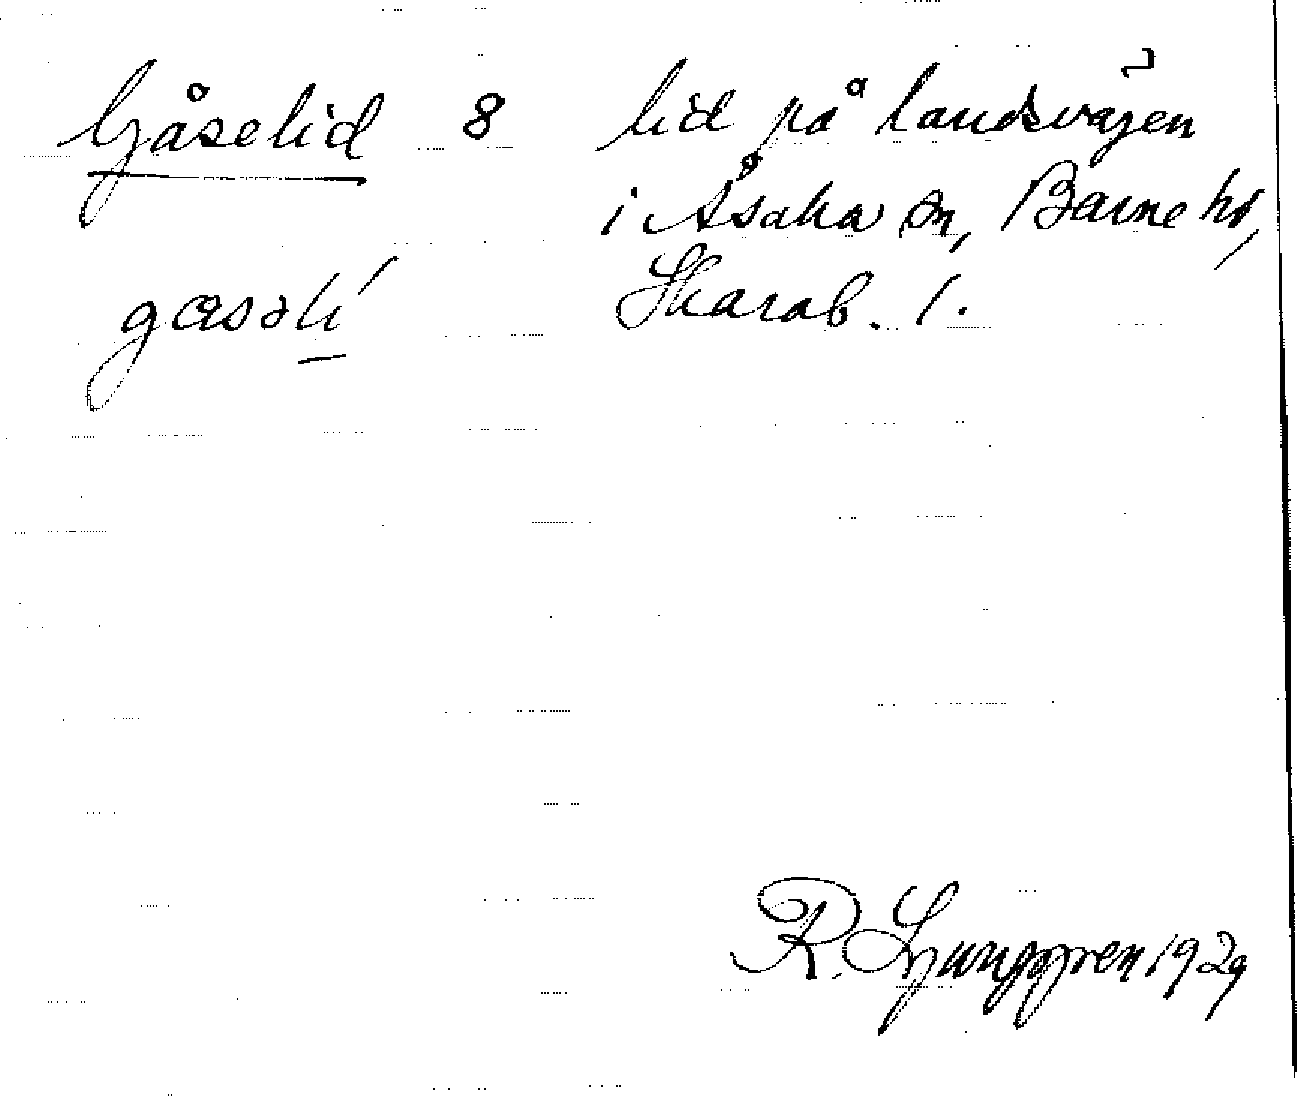 Gåselid 8 lid på landsvägen
i Åsaka sn, Barne hd,
gasəli ́ Skarab. l.
R. Ljunggren 1929